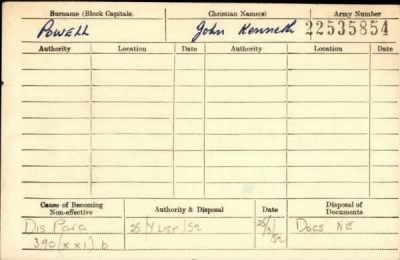 Surname (Block Capitals. Christian Name(s) Army Number
POWELL John Kenneth 22535854
Authority Location Date Authority Location Date
Cause of Becoming Non-effective Authority & Disposal Date Disposal of Documents
Dis Para 25/Y LIST/52 Docs NE
390 (xxi) b